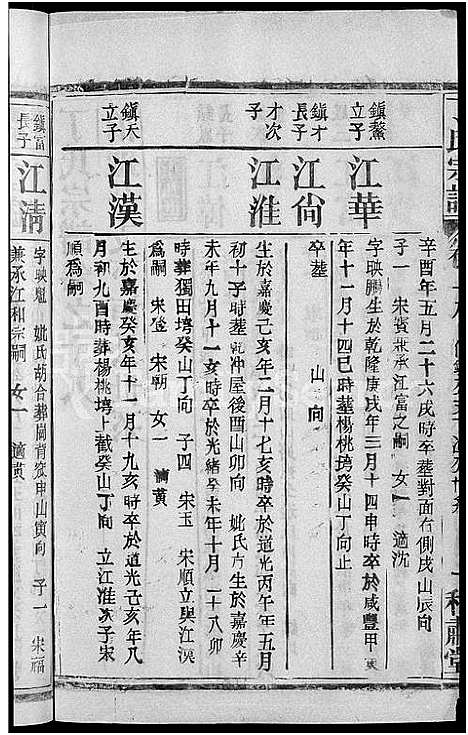 辛酉年五月二十六戌時卒塟對面右側戌山辰向
子一 宋賓兼承江富之嗣 女一 適沈
鎮鰲
立子
江華
字映鵬生於乾隆庚戌年三月十四申時卒於咸豐甲寅
年十一月十四巳時塟楊桃塆癸山丁向止
鎮才
長子
江尙
卒塟 山 向
才次
子
江淮
生於嘉慶乙亥年二月十七亥時卒於道光丙午年五月
初十子時塟 冲屋後酉山卯向 妣氏方生於嘉慶辛
未年九月十一亥時卒於光緒癸未年十月二十八卯
時葬獨田塆癸山丁向 子四 宋玉 宋順立與江漢
為嗣 宋 宋朝 女一 適黄
鎮天
立子
江漢
生於嘉慶癸亥年十一月十九亥時卒於道光己亥年八
月初九酉時葬楊桃塆上截癸山丁向 立江淮次子宋
順為嗣
鎮富
長子
江清
字映魁 妣氏胡合葬 背 申山寅向 子一 宋福
兼承江和宗嗣 女一 適黄